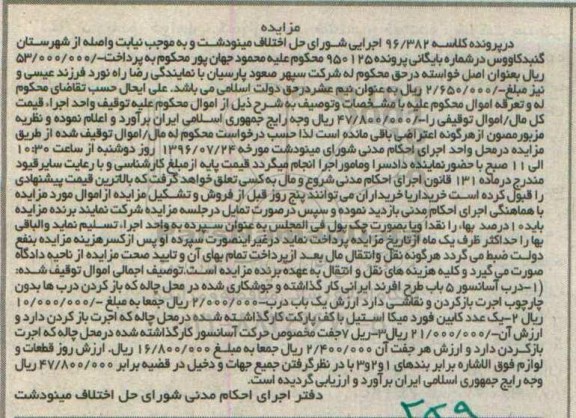 مزایده
درپرونده کلاسه ۹۶/۳۸۲ اجرایی شورای حل اختلاف مینودشت و به موجب نیابت واصله از شهرستان
گنبدکاووس درشماره بایگانی پرونده ۹۵۰۱۲۵ محکوم علیه محمود جهان پور محکوم به پرداخت-/۵۳/۰۰۰/۰۰۰
ریال بعنوان اصل خواسته درحق محکوم له شرکت سپهر صعود پارسیان با نمایندگی رضا راه نورد فرزند عیسی و
نیز مبلغ-/۲/۶۵۰/۰۰۰ ریال به عنوان نیم عشردرحق دولت اسلامی می باشد. علی ایحال حسب تقاضای محکوم
له و تعرفه اموال محکوم علیه با مشخصات وتوصیف به شرح ذیل از اموال محکوم علیه توقیف واحد اجرا، قیمت
کل مال/اموال توقیفی را-/۴۷/۸۰۰/۰۰۰ ریال وجه رایج جمهوری اسلامی ایران برآورد و اعلام نموده و نظریه
مزبورمصون ازهرگونه اعتراضی باقی مانده است لذا حسب درخواست محکوم له مال/اموال توقیف شده از طریق
مزایده درمحل واحد اجرای احکام مدنی شورای مینودشت مورخه ۱۳۹۶/۰۷/۲۴ روز دوشنبه از ساعت ۱۰:۳۰
الی ۱۱ صبح با حضورنماینده دادسرا وماموراجرا انجام میگردد قیمت پایه ازمبلغ کارشناسی و با رعایت سایرقیود
مندرج درماده ۱۳۱ قانون اجرای احکام مدنی شروع و مال به کسی تعلق خواهد گرفت که بالاترین قیمت پیشنهادی
را قبول کرده است خریداریا خریداران می توانند پنج روز قبل از فروش و تشکیل مزایده ازاموال مورد مزایده
با هماهنگی اجرای احکام مدنی بازدید نموده و سپس درصورت تمایل درجلسه مزایده شرکت نمایند برنده مزایده
باید ۱۰درصد بها، را نقدا ویا بصورت چک پول فی المجلس به عنوان سپرده به واحد اجراء تسلیم نماید والباقی
بها را حداکثر ظرف یک ماه ازتاریخ مزایده پرداخت نماید درغیراینصورت سپرده او پس ازکسرهزینه مزایده بنفع
دولت ضبط می گردد هرگونه نقل وانتقال مال بعد ازپرداخت تمام بهای آن و تایید صحت مزایده از ناحیه دادگاه
صورت می گیرد و کلیه هزینه های نقل و انتقال به عهده برنده مزایده است.توصیف اجمالی اموال توقیف شده:
(۱-درب آسانسور ۵ باب طرح افرند ایرانی کار گذاشته و جوشکاری شده در محل چاله که باز کردن درب ها بدون
چارچوب اجرت بازکردن و نقاشی دارد ارزش یک باب درب-/۲/۰۰۰/۰۰۰ ریال جمعا به مبلغ -/۱۰/۰۰۰/۰۰۰
ریال ۲-یک عدد کابین فورد میکا استیل با کف پارکت کارگذاشته شده درمحل چاله که اجرت باز کردن دارد و
ارزش آن-/۲۱/۰۰۰/۰۰۰ ریال۳-ریل ۷جفت مخصوص حرکت آسانسور کارگذاشته شده درمحل چاله که اجرت
بازکردن دارد و ارزش هر جفت آن ۲/۴۰۰/۰۰۰ ریال جمعا به مبلغ ۱۶/۸۰۰/۰۰۰ ریال. ارزش روز قطعات و
لوازم فوق الاشاره برابر بندهای ۱و۲و۳ با در نظرگرفتن جمیع جهات و دخیل در قضیه برابر ۴۷/۸۰۰/۰۰۰ ریال
وجه رایج جمهوری اسلامی ایران برآورد و ارزیابی گردیده است.
دفتر اجرای احکام مدنی شورای حل اختلاف مینودشت